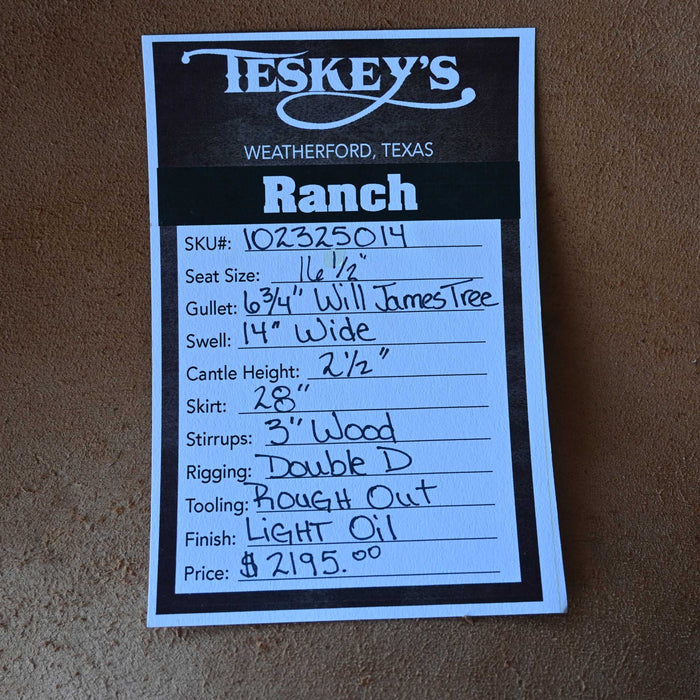 TESKEY'S
WEATHERFORD, TEXAS
Ranch
SKU#: 102325014
Seat Size: 16 1/2"
Gullet: 6 3/4" Will James Tree
Swell: 14" Wide
Cantle Height: 2 1/2"
Skirt: 28"
Stirrups: 3" Wood
Rigging: Double D
Tooling: ROUGH OUT
Finish: LIGHT Oil
Price: $ 2195.00